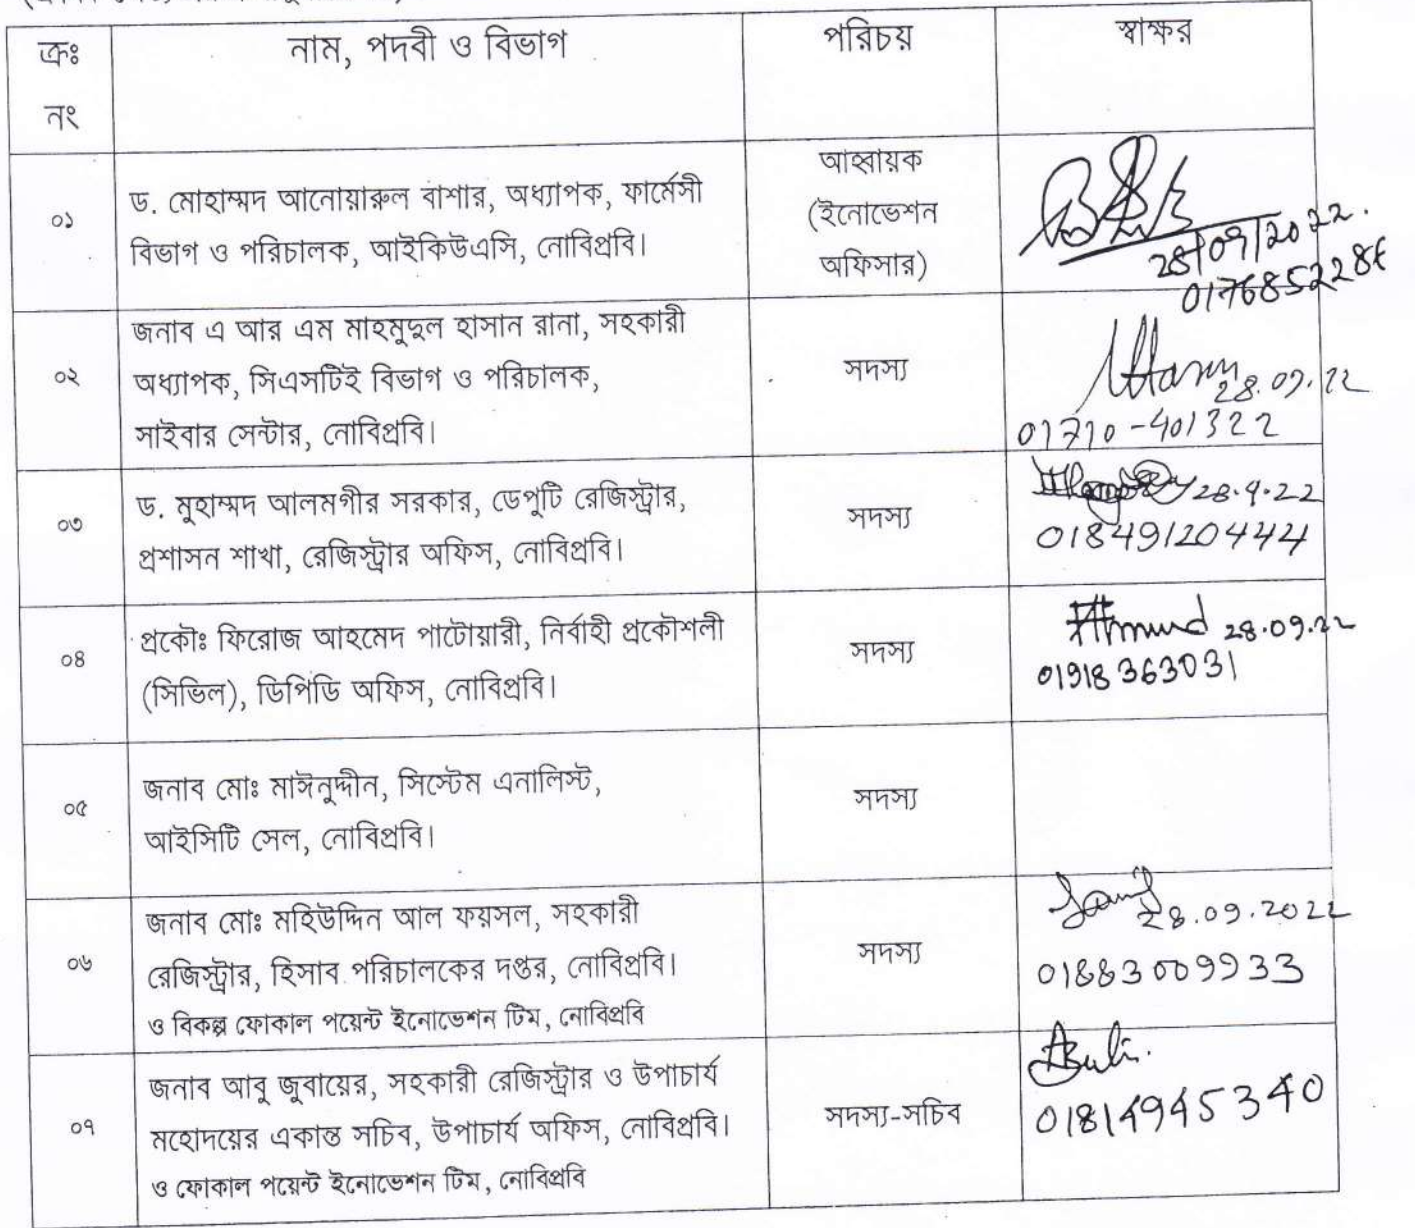 ক্রঃ
নং
নাম, পদবী ও বিভাগ
পরিচয়
স্বাক্ষর
০১
ড. মোহাম্মদ আনোয়ারুল বাশার, অধ্যাপক, ফার্মেসী
বিভাগ ও পরিচালক, আইকিউএসি, নোবিপ্রবি।
আহ্বায়ক
(ইনোভেশন
অফিসার)
28/09/2022.
০২
জনাব এ আর এম মাহমুদুল হাসান রানা, সহকারী
অধ্যাপক, সিএসটিই বিভাগ ও পরিচালক,
সাইবার সেন্টার, নোবিপ্রবি।
সদস্য
28.09.22
01710-401322
০৩
ড. মুহাম্মদ আলমগীর সরকার, ডেপুটি রেজিস্ট্রার,
প্রশাসন শাখা, রেজিস্ট্রার অফিস, নোবিপ্রবি।
সদস্য
28.9.22
01849120444
০৪
প্রকৌঃ ফিরোজ আহমেদ পাটোয়ারী, নির্বাহী প্রকৌশলী
(সিভিল), ডিপিডি অফিস, নোবিপ্রবি।
সদস্য
28.09.22
01918363031
০৫
জনাব মোঃ মাঈনুদ্দীন, সিস্টেম এনালিস্ট,
আইসিটি সেল, নোবিপ্রবি।
সদস্য
০৬
জনাব মোঃ মহিউদ্দিন আল ফয়সল, সহকারী
রেজিস্ট্রার, হিসাব পরিচালকের দপ্তর, নোবিপ্রবি।
ও বিকল্প ফোকাল পয়েন্ট ইনোভেশন টিম, নোবিপ্রবি
সদস্য
28.09.2022
01883009933
০৭
জনাব আবু জুবায়ের, সহকারী রেজিস্ট্রার ও উপাচার্য
মহোদয়ের একান্ত সচিব, উপাচার্য অফিস, নোবিপ্রবি।
ও ফোকাল পয়েন্ট ইনোভেশন টিম, নোবিপ্রবি
সদস্য-সচিব
01814945340